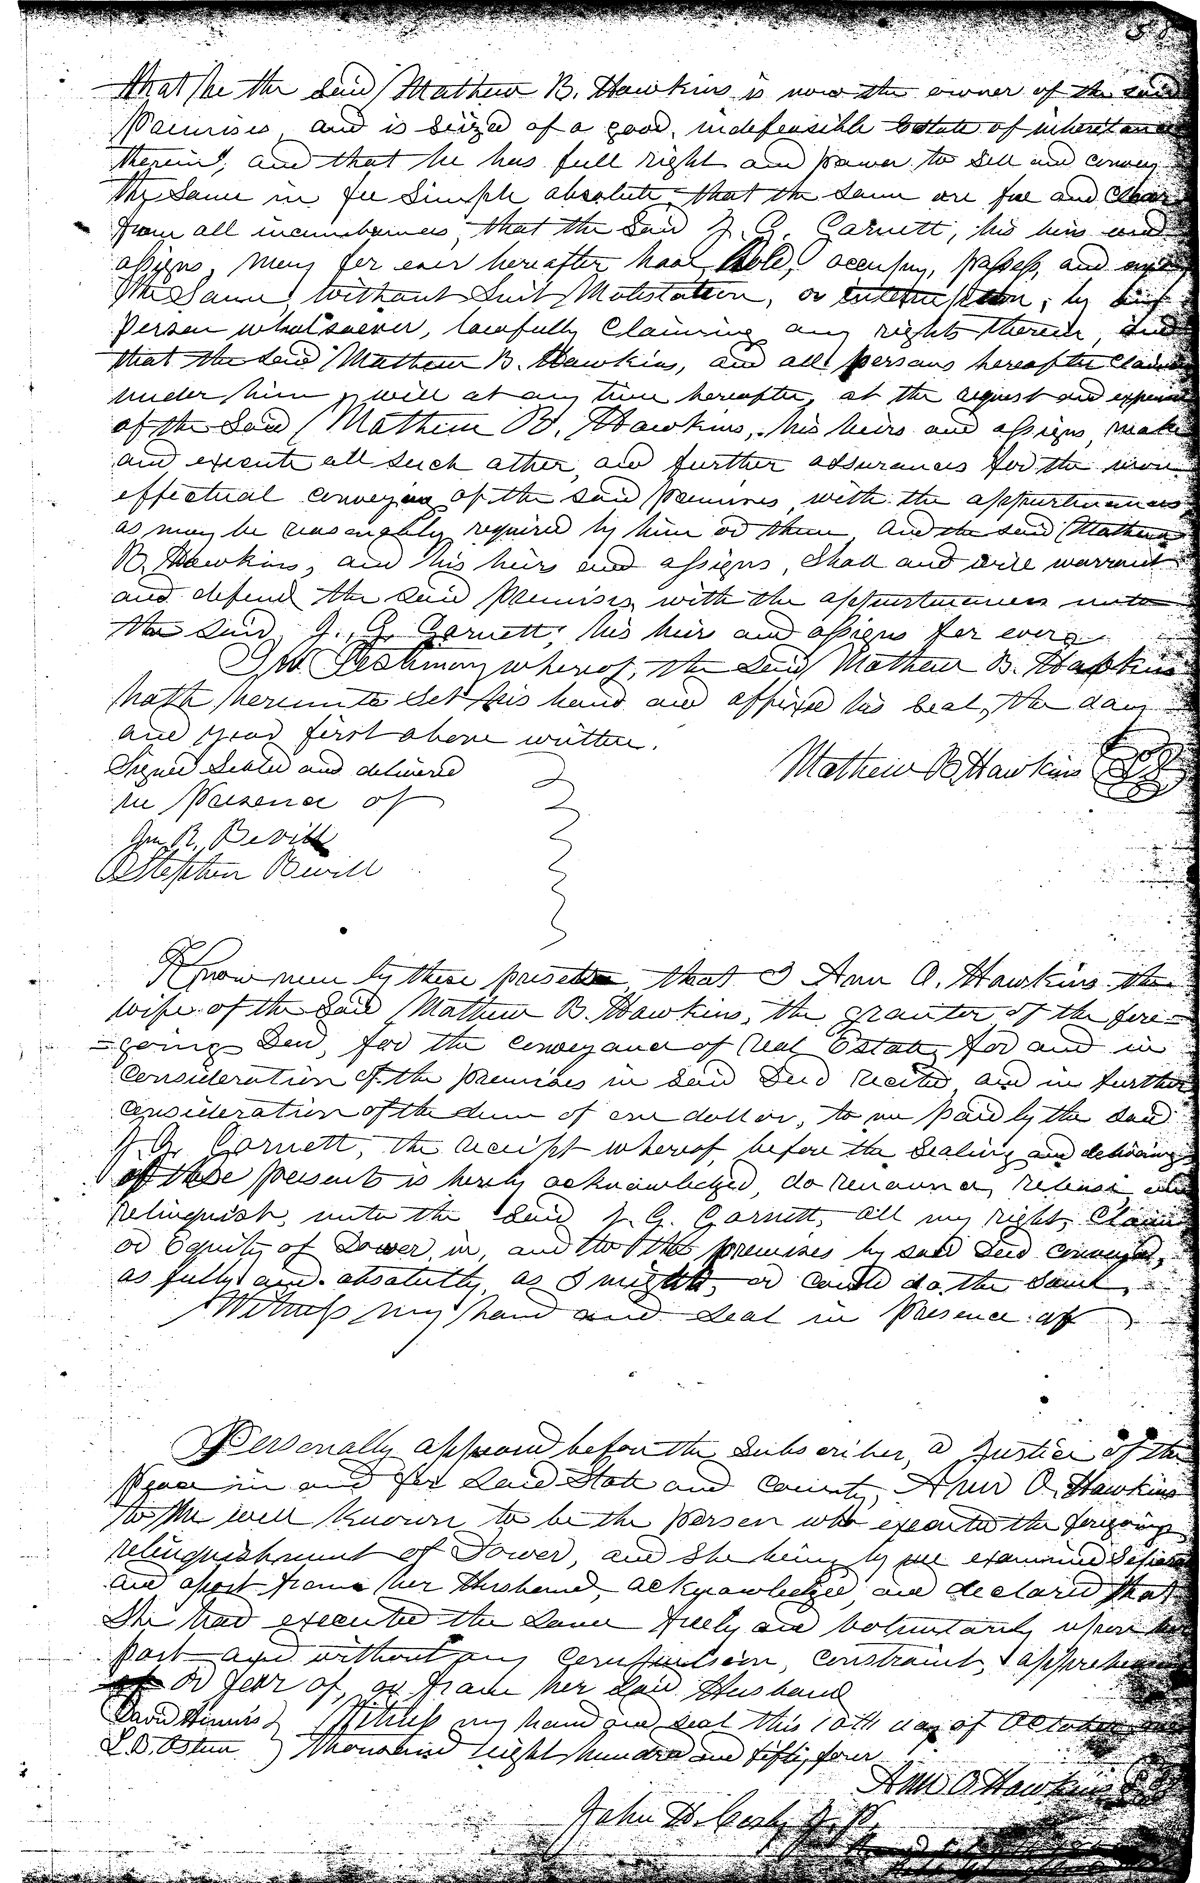 that he the said Mathew B. Hawkins is now the owner of the said
Premises, and is seized of a good, indefeasible Estate of inheritance
therein, and that he has full right and power to sell and convey
the same in fee simple absolute, that the same are free and clear
from all incumbrances, that the said J. G. Garnett, his heirs and
assigns, may for ever hereafter have, hold, occupy, possess, and enjoy
the same, without suit, Molestation, or interruption, by any
person whatsoever, lawfully claiming any rights therein, and
that the said Mathew B. Hawkins, and all persons hereafter claiming
under him, will at any time hereafter, at the request and expense
of the said Mathew B. Hawkins, his heirs and assigns, make
and execute all such other, and further assurances for the more
effectual conveying of the said premises, with the appurtenances
as may be reasonably required by him or them, And the said Mathew
B. Hawkins, and his heirs and assigns, shall and will warrant
and defend the said premises, with the appurtenances unto
the said, J. G. Garnett, his heirs and assigns for ever,
In Testimony whereof, the said Mathew B. Hawkins
hath hereunto set his hand and affixed his seal, the day
and year first above written.
Signed Sealed and delivered
in Presence of
Mathew B. Hawkins
Jm R. Bevill
Stephen Bevill
Know men by these presents, that I Ann O. Hawkins the
wife of the said Mathew B. Hawkins, the grantor of the fore=
=going Deed, for the conveyance of real Estate, for and in
consideration of the premises in said Deed recited, and in further
consideration of the sum of one dollar, to me paid by the said
J. G. Garnett, the receipt whereof, before the Sealing and delivering
of these presents is hereby acknowledged, do renounce, release and
relinquish, unto the said J. G. Garnett, all my right, Claim
or Equity of Dower, in, and to the premises by said Deed conveyed,
as fully and absolutely, as I might, or could do, the same.
Witness my hand and seal in presence of
Personally appeared before the Subscriber, a Justice of the
Peace in and for said State and County, Ann O. Hawkins
to me well known to be the person who executed the foregoing
relinquishment of Dower, and she being by me examined separate
and apart from her Husband, acknowledged, and declared that
She had executed the same freely and voluntarily upon her
part and without any compulsion, constraint, apprehension
or fear of, or from her said Husband
Witness my hand and seal this 10th day of October one
thousand eight hundred and fifty four
David Hinnis
L. D. Osteen
Ann O Hawkins
John H. Cosby J. P.